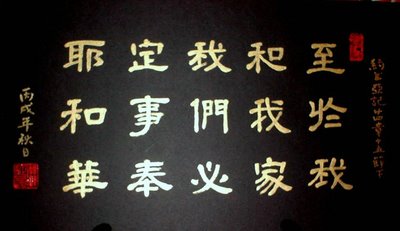 約書亞記廿四章十五節下
至於我
和我家
我們必
定事奉
耶和華
丙戌年秋日